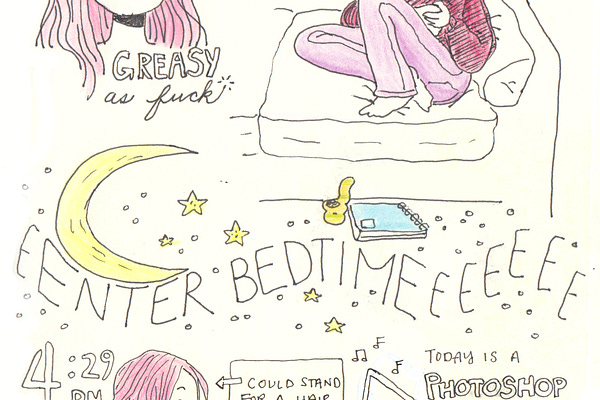 GREASY
as fuck
EENTER BEDTIMEEEEEEE
4:29
PM
COULD STAND
FOR A HAIR
TODAY IS A
PHOTOSHOP